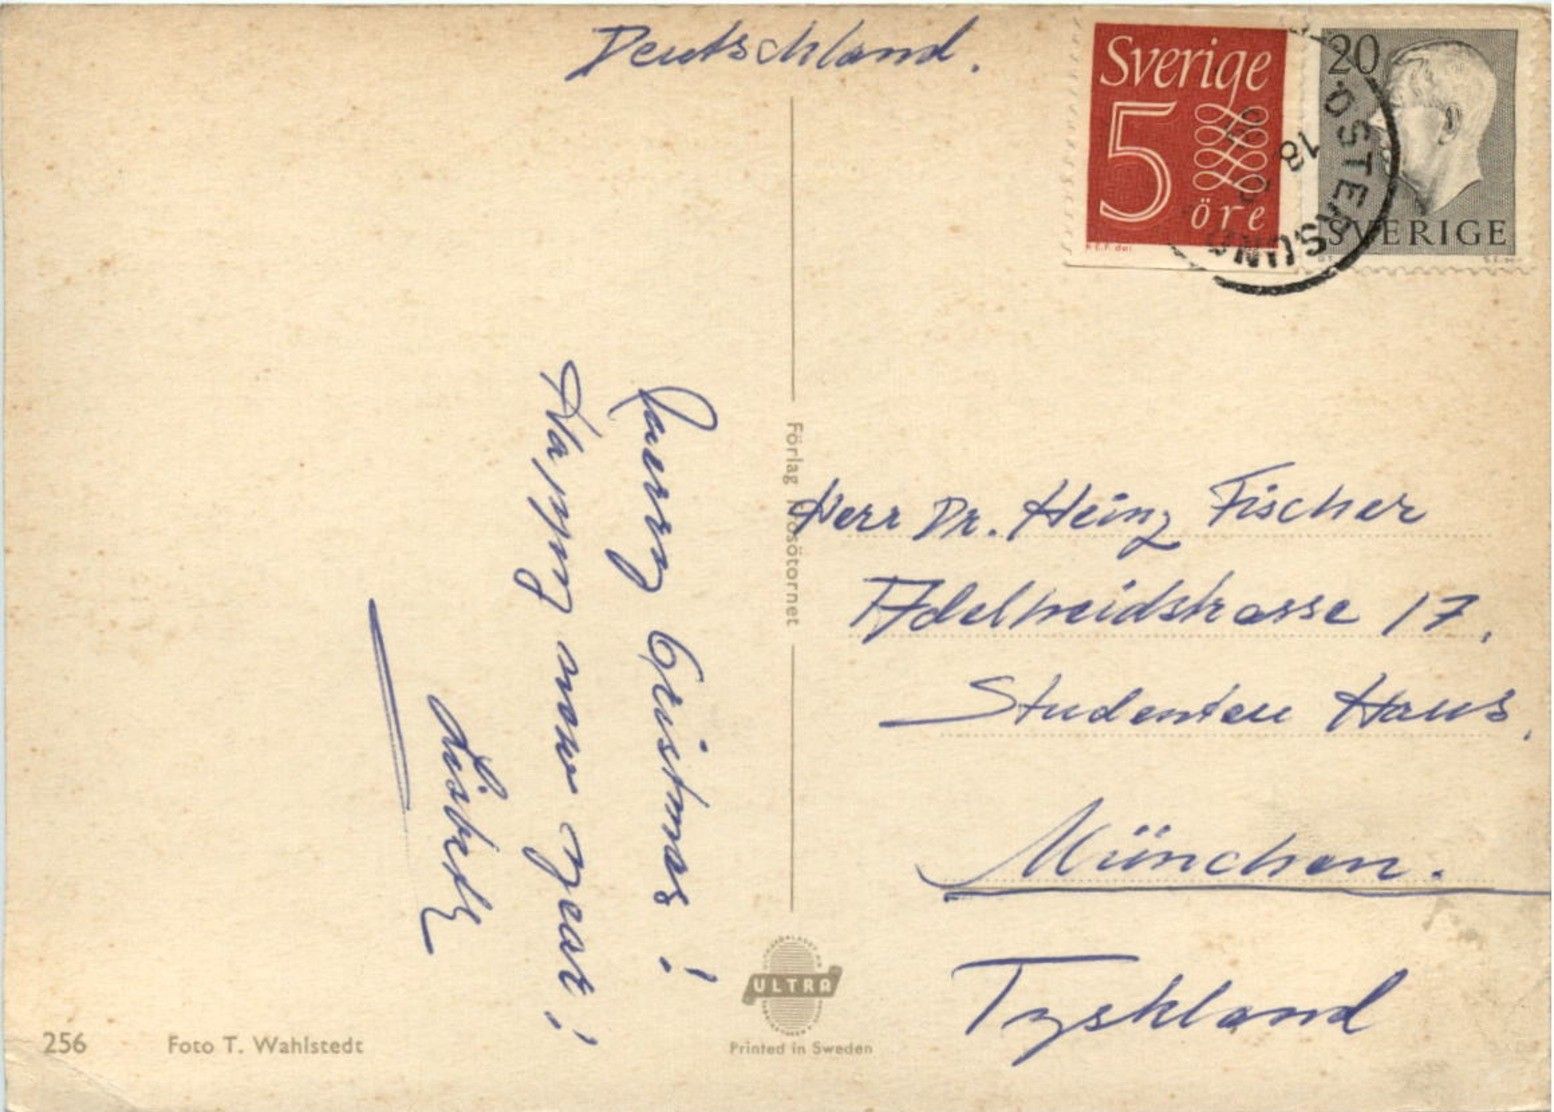 Deutschland.
Sverige
5
öre
20
SVERIGE
ÖSTERSUND
18
Merry Cristmas!
Happy new year!
Lisbeth
Förlag Frösötornet
Herr Dr. Heinz Fischer
Adelheidstrasse 17,
Studenten Haus,
München.
Tyskland
ULTRA
Printed in Sweden
256
Foto T. Wahlstedt